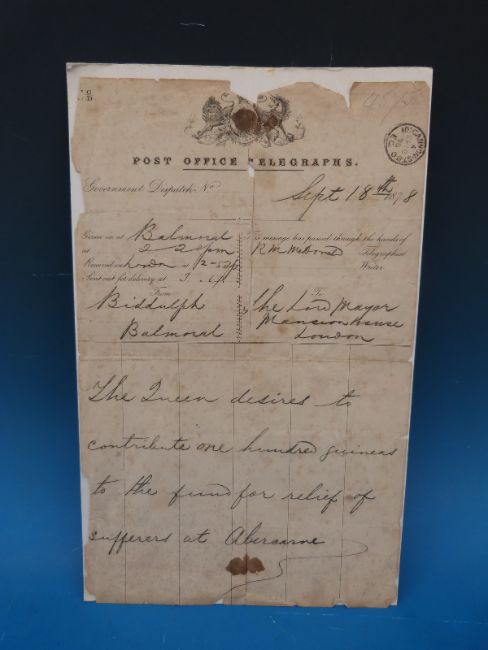 POST OFFICE TELEGRAPHS.
Government Dispatch No
Sept 18th 1878
Given in at Balmoral
at 2-2 pm
Received in London at 2-52 p
Sent out for delivery at
From
Biddulph
Balmoral
This message has passed through the hands of
R. M. McDonald Telegraphist
Writer
To
The Lord Mayor
Mansion House
London
The Queen desires to
contribute one hundred guineas
to the fund for relief of
sufferers at Abercarne